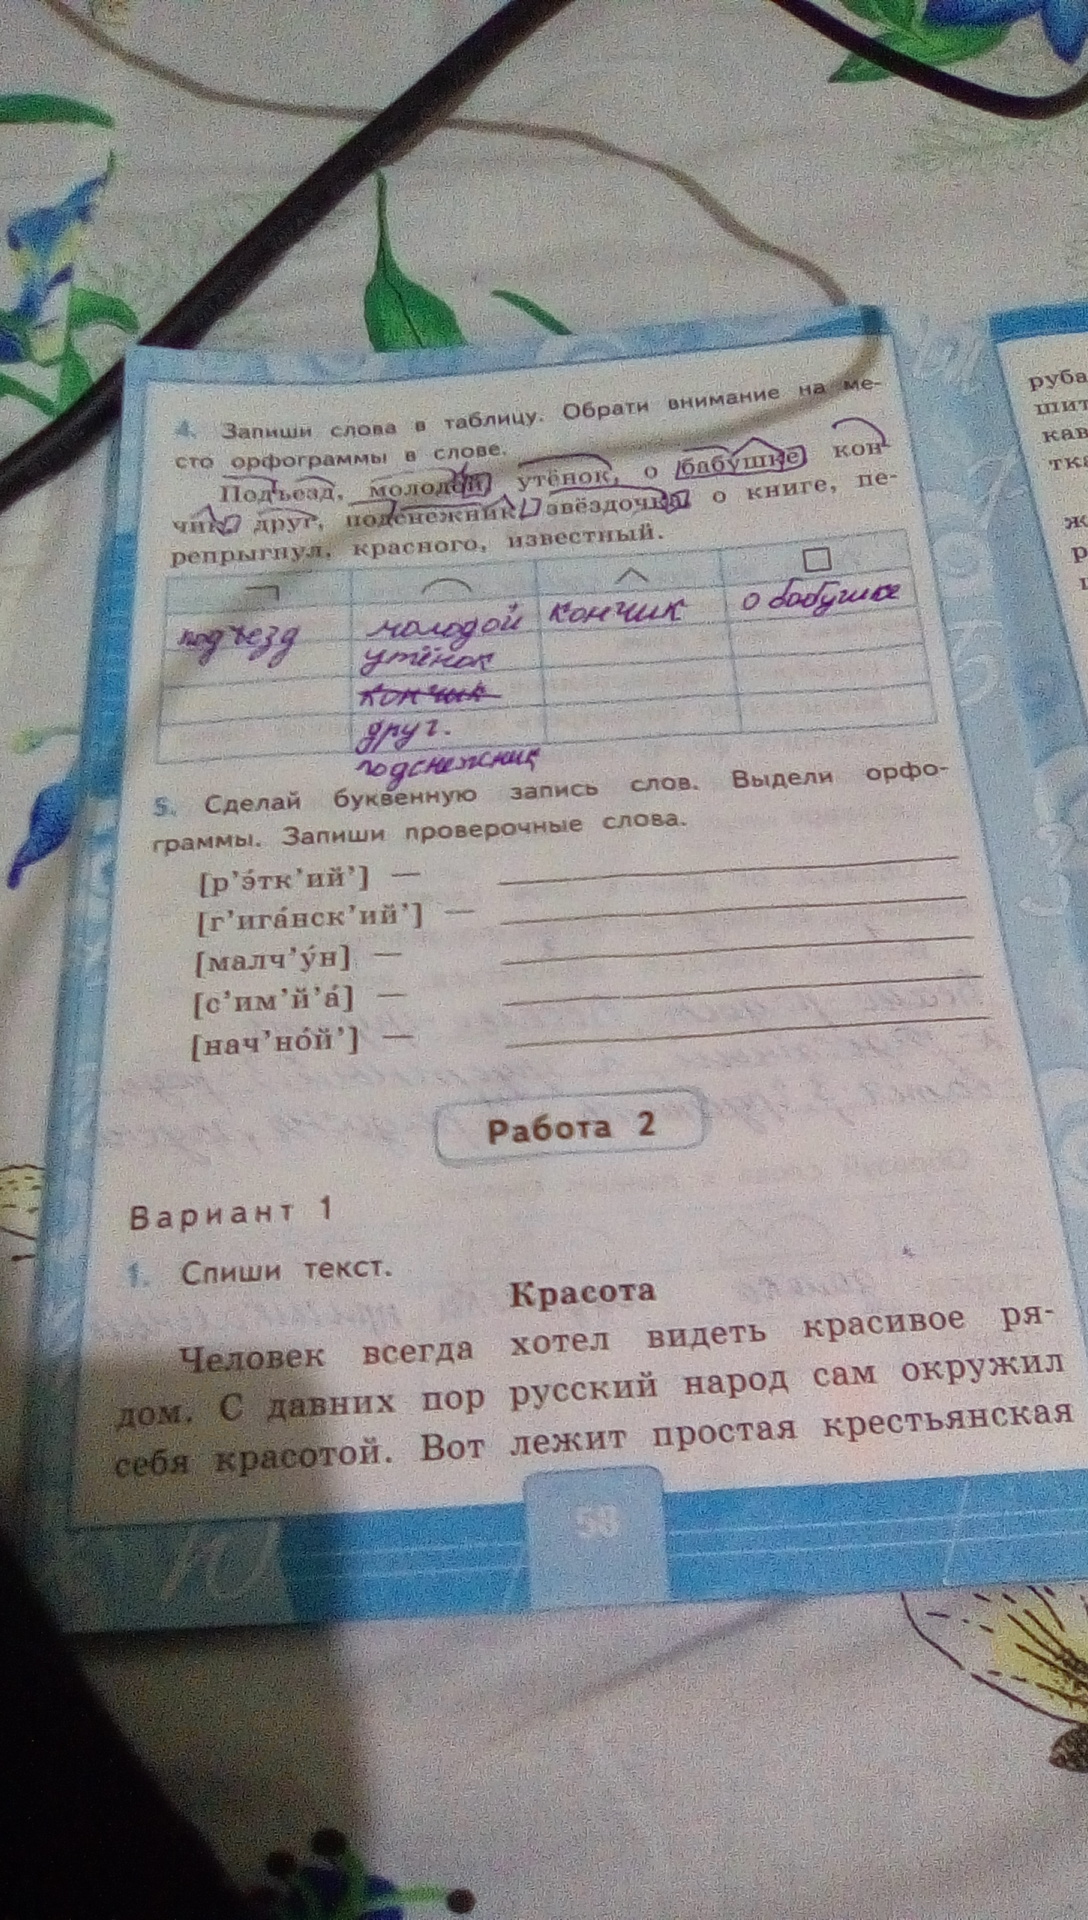 4. Запиши слова в таблицу. Обрати внимание на ме-
сто орфограммы в слове.
Подъезд, молодой, утёнок, о бабушке, кон-
чик, друг, подснежник, звёздочка, о книге, пе-
репрыгнул, красного, известный.
подъезд молодой кончик о бабушке
утёнок
кончик
друг.
подснежник
5. Сделай буквенную запись слов. Выдели орфо-
граммы. Запиши проверочные слова.
[р’э́тк’ий’] —
[г’ига́нск’ий’] —
[малч’у́н] —
[с’им’й’а́] —
[нач’но́й’] —
Работа 2
Вариант 1
1. Спиши текст.
Красота
Человек всегда хотел видеть красивое ря-
дом. С давних пор русский народ сам окружил
себя красотой. Вот лежит простая крестьянская
58
руба
шит
кав
тка
ж
р